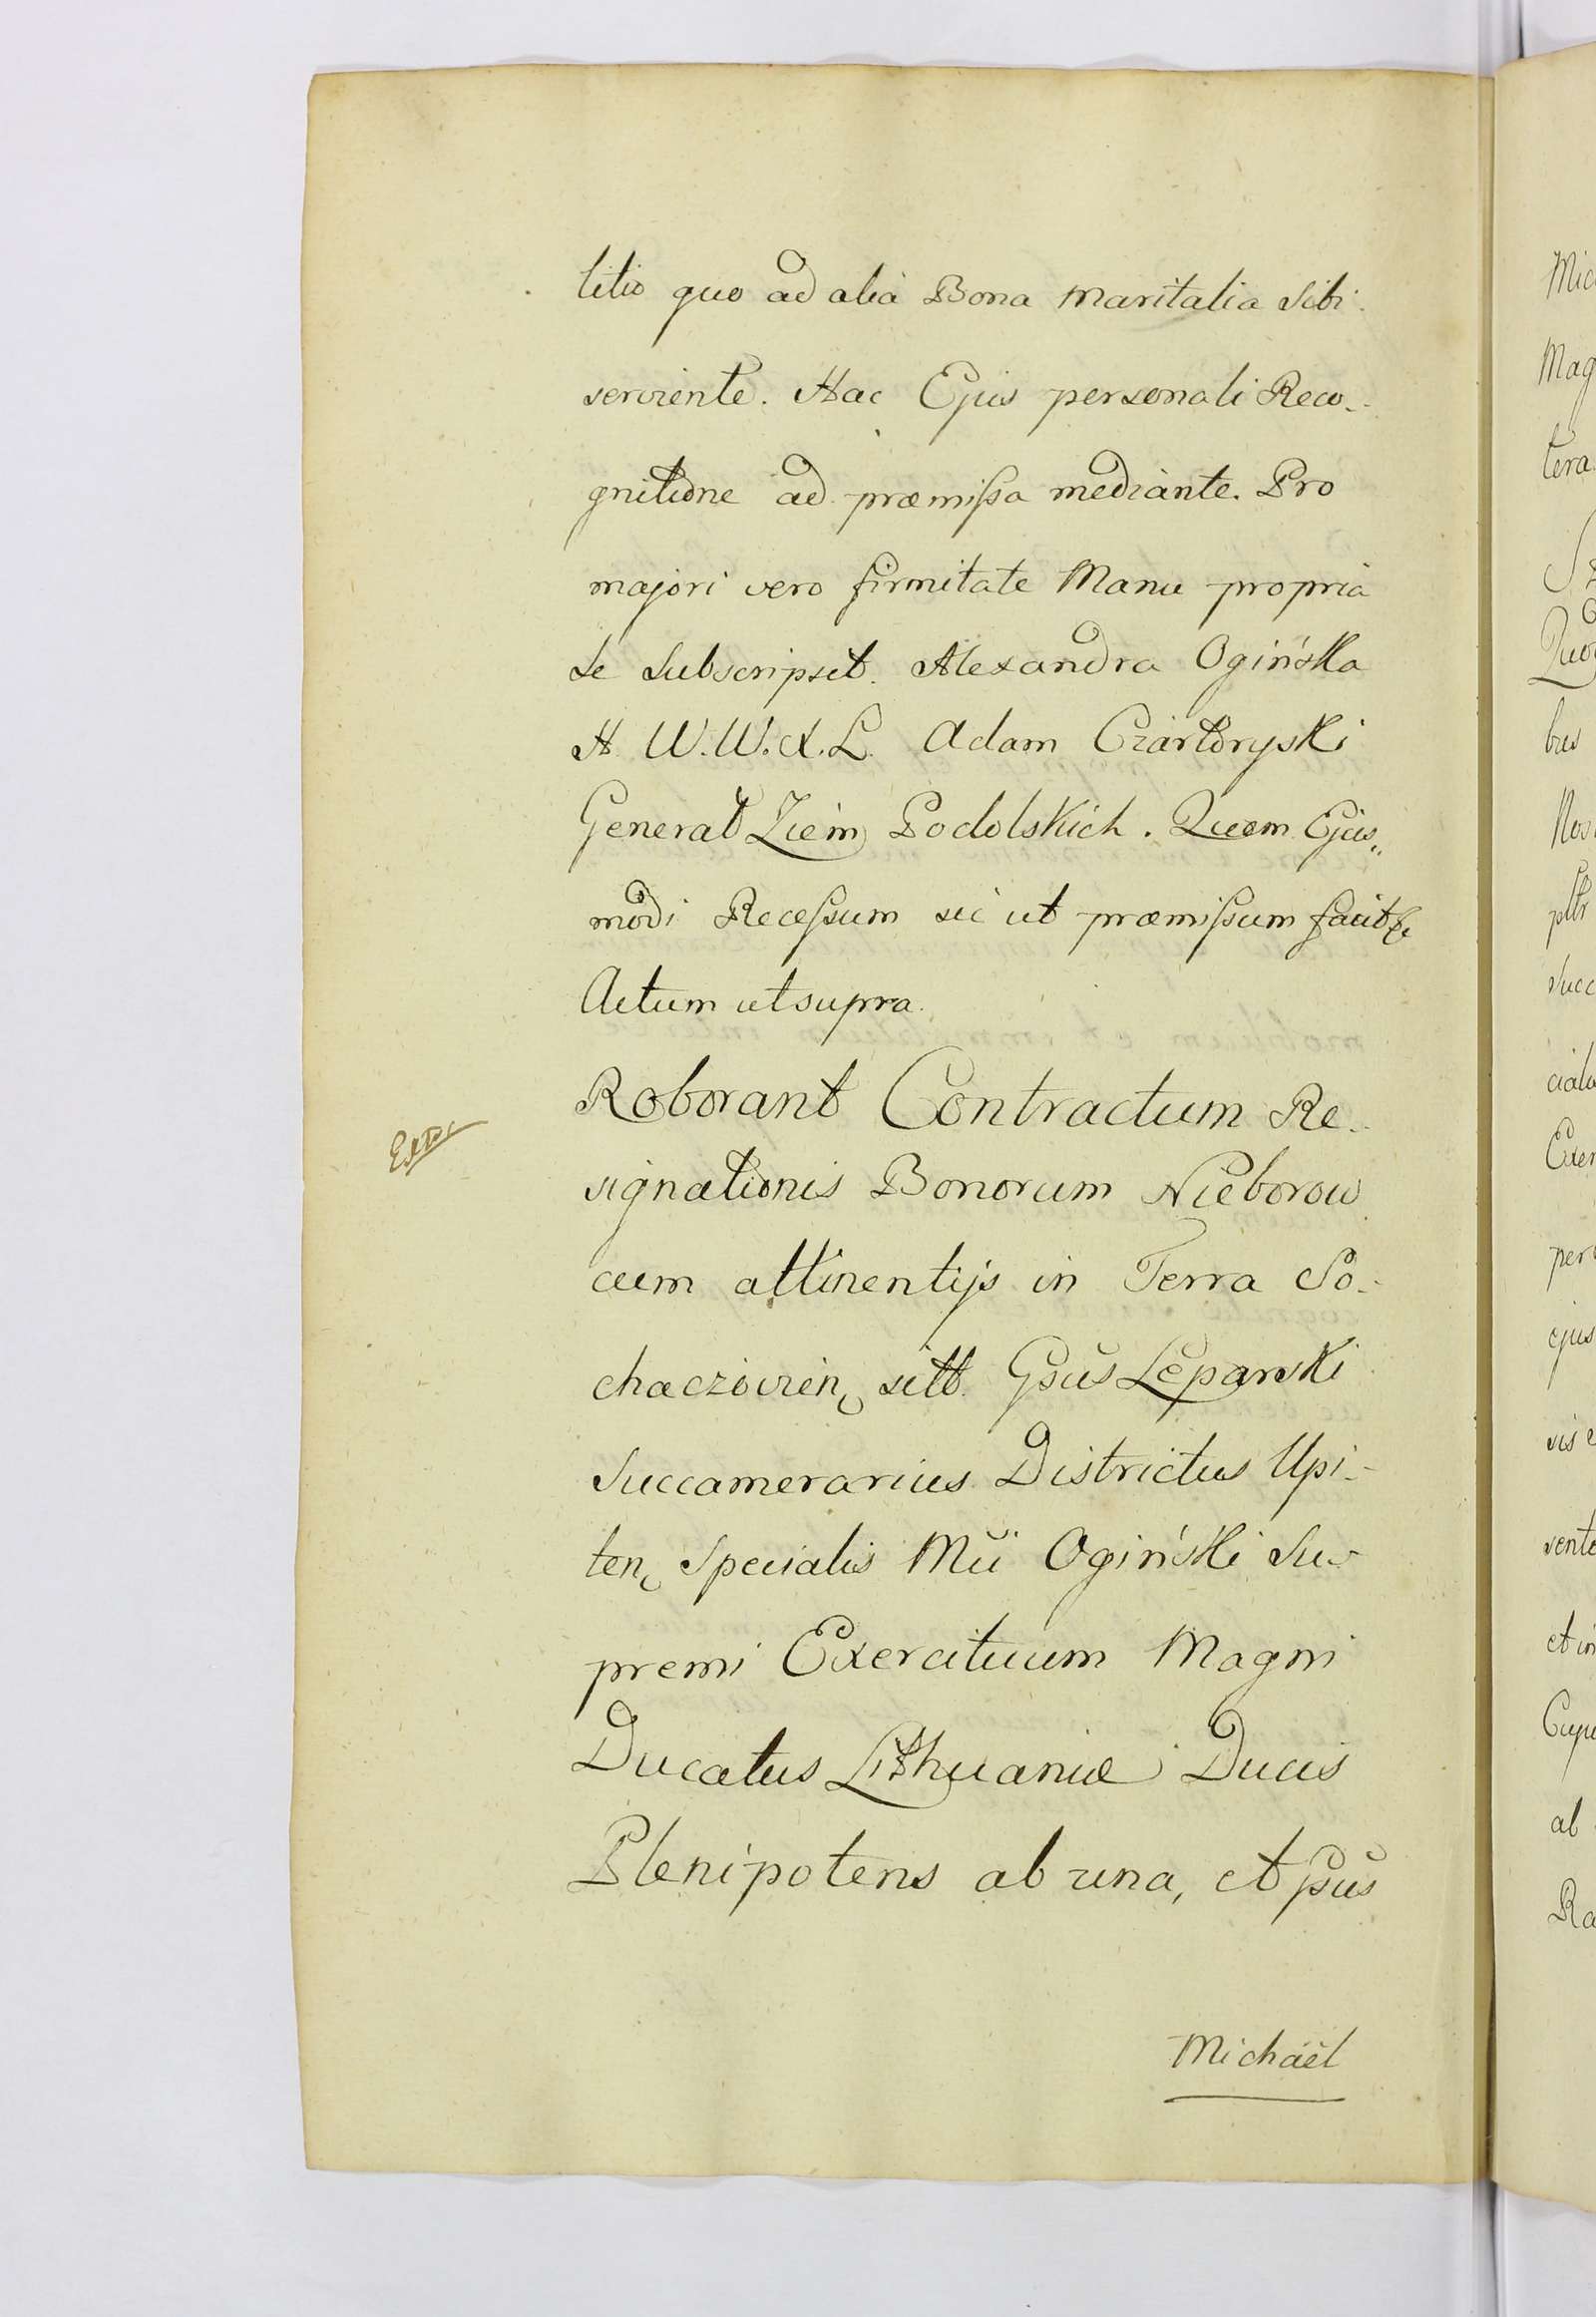 litio quo ad alia Bona Maritalia Sibi
serviente. Hac Ejus personali Reco-
gnitione ad præmissa mediante. Pro
majori vero firmitate Manu propria
Se Subscripsit. Alexandra Ogińska
H. W. W. X. L. Adam Czartoryski
Generał Ziem Podolskich. Quem Ejus„
modi Recessum sic ut præmissum facit
Actum ut supra.
Roborant Contractum Re-
signationis Bonorum Nieborow
cum attinentijs in Terra So-
chaczovien, sitt. Gsus Leparski
Succamerarius Districtus Upi-
ten, Specialis Mci Ogiński Su-
premi Exercituum Magni
Ducatus Lithuaniæ Ducis
Plenipotens ab una, et
Michaël
Mic
Mag
tera
bus
Nos
succ
ejus
sente
et in
ab
Ra